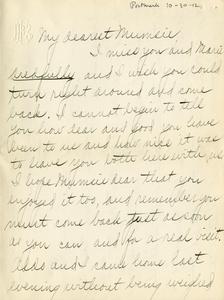 Postmark 10-30-12
My dearest Mumsie
I miss you and Marie
dreadfully and I wish you could
turn right around and come
back. I cannot begin to tell
you how dear and good you have
been to us and how nice it was
to have you both here with us.
I hope Mumsie dear that you
enjoyed it too, and remember you
must come back just as soon
as you can and for a real visit.
and I came home last
evening without being weeded